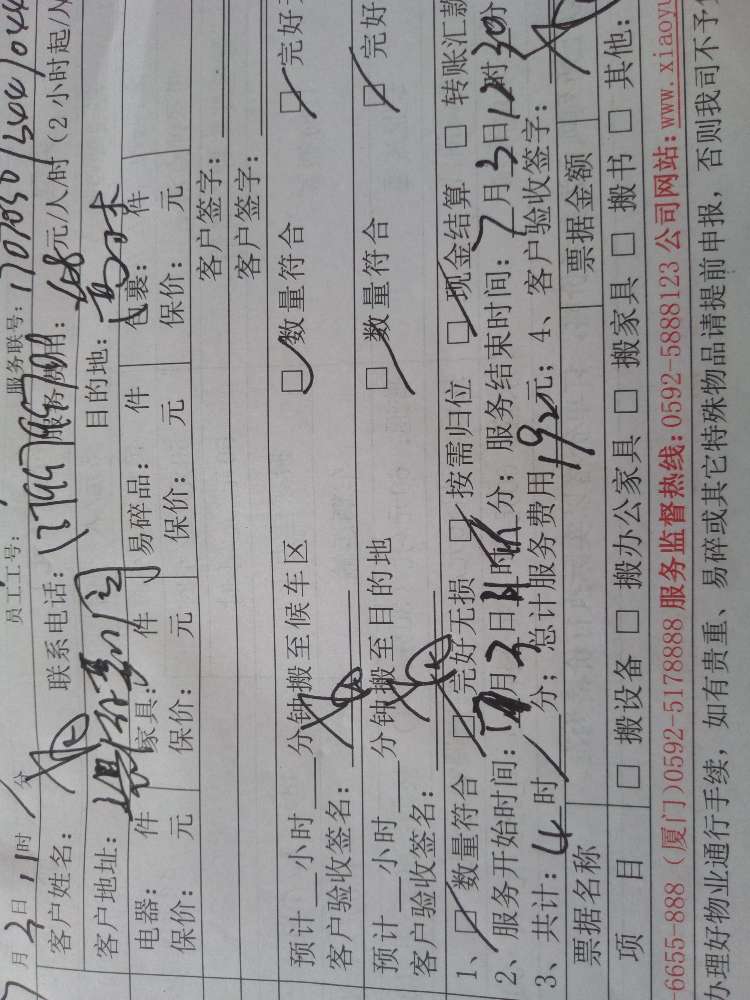 员工工号: 服务联号: 1707050/344/044
月2日11时 分
客户姓名: 联系电话: 服务费用: 48元/人/时（2小时起/
客户地址: 目的地:
电器: 件 家具: 件 易碎品: 件 包裹: 件
保价: 元 保价: 元 保价: 元 保价: 元
客户签字:
客户签字:
预计__小时__分钟搬至候车区 □数量符合 □完好
客户验收签名:
预计__小时__分钟搬至目的地 □数量符合 □完好
客户验收签名:
1、□数量符合 □完好无损 □按需归位 □现金结算 □转账汇款
2、服务开始时间: 月3日11时 分; 服务结束时间: 7月3日12时30分
3、共计: 4时 分; 总计服务费用192元; 4、客户验收签字:
票据名称 票据金额
项 目 □搬设备 □搬办公家具 □搬家具 □搬书 □其他:
6655-888（厦门)0592-5178888 服务监督热线:0592-5888123 公司网站:www.xiaoyu
办理好物业通行手续, 如有贵重、易碎或其它特殊物品请提前申报, 否则我司不予